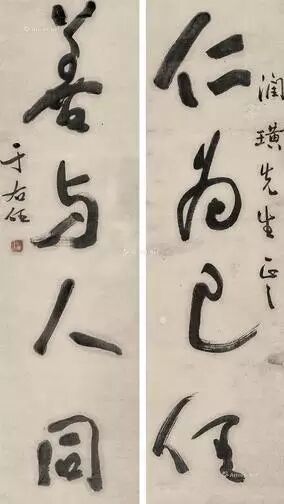 仁为己任
润璜先生正之
善与人同
于右任